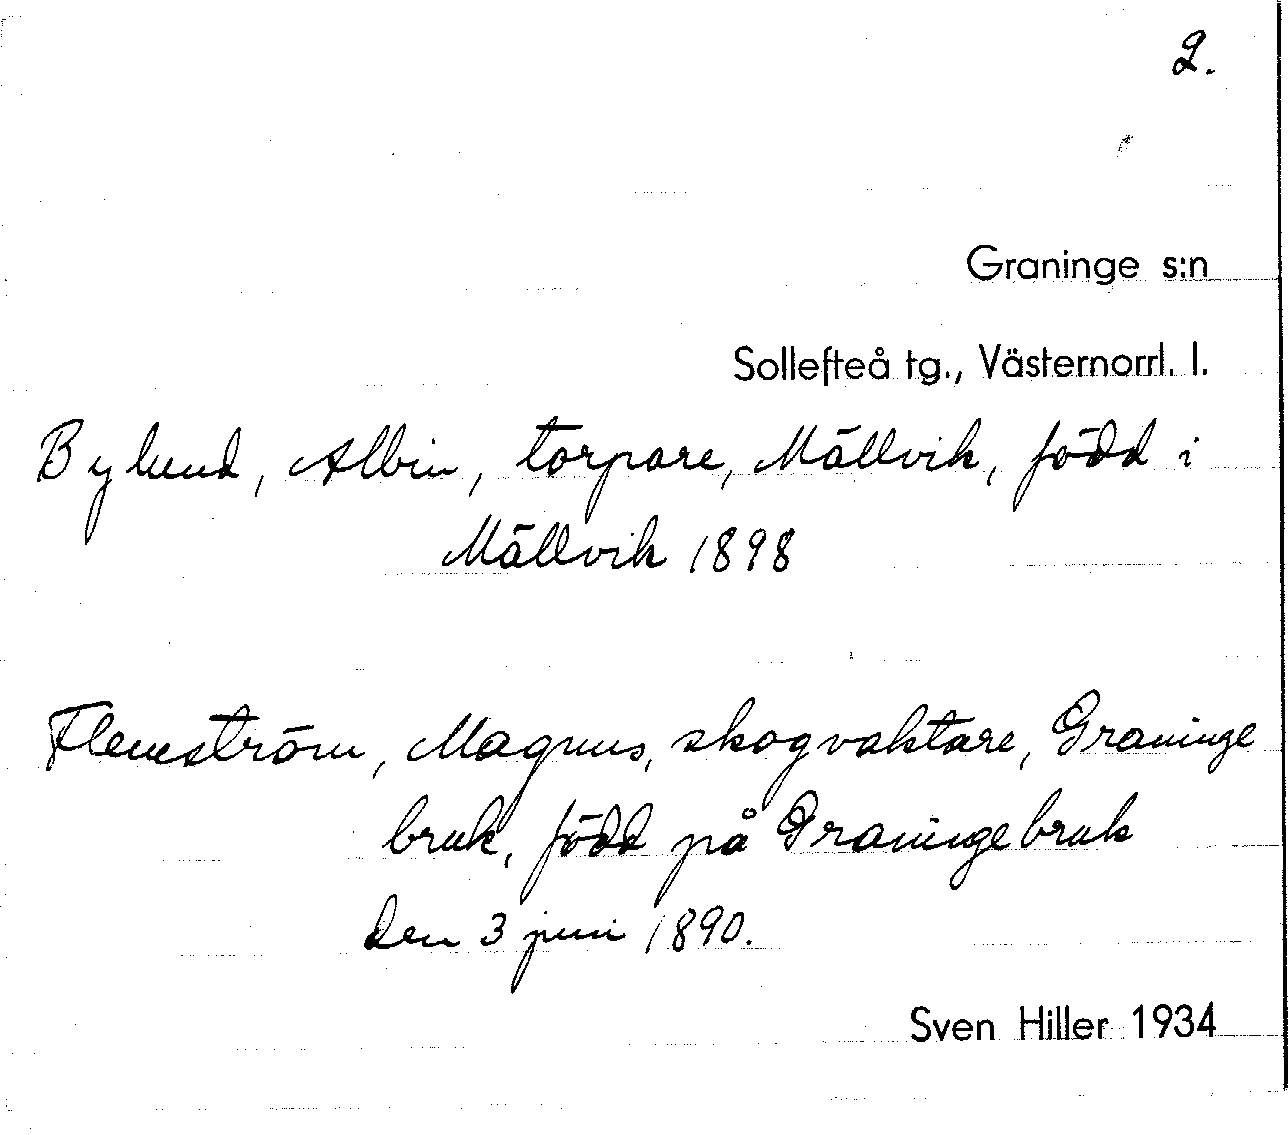 2.
Graninge s:n
Sollefteå tg., Västernorrl. l.
Bylund, Albin, torpare, Mällvik, född i
Mällvik 1898
Flemström, Magnus, skogvaktare, Graninge
bruk, född på Graningebruk
den 3 juni 1890.
Sven Hiller 1934